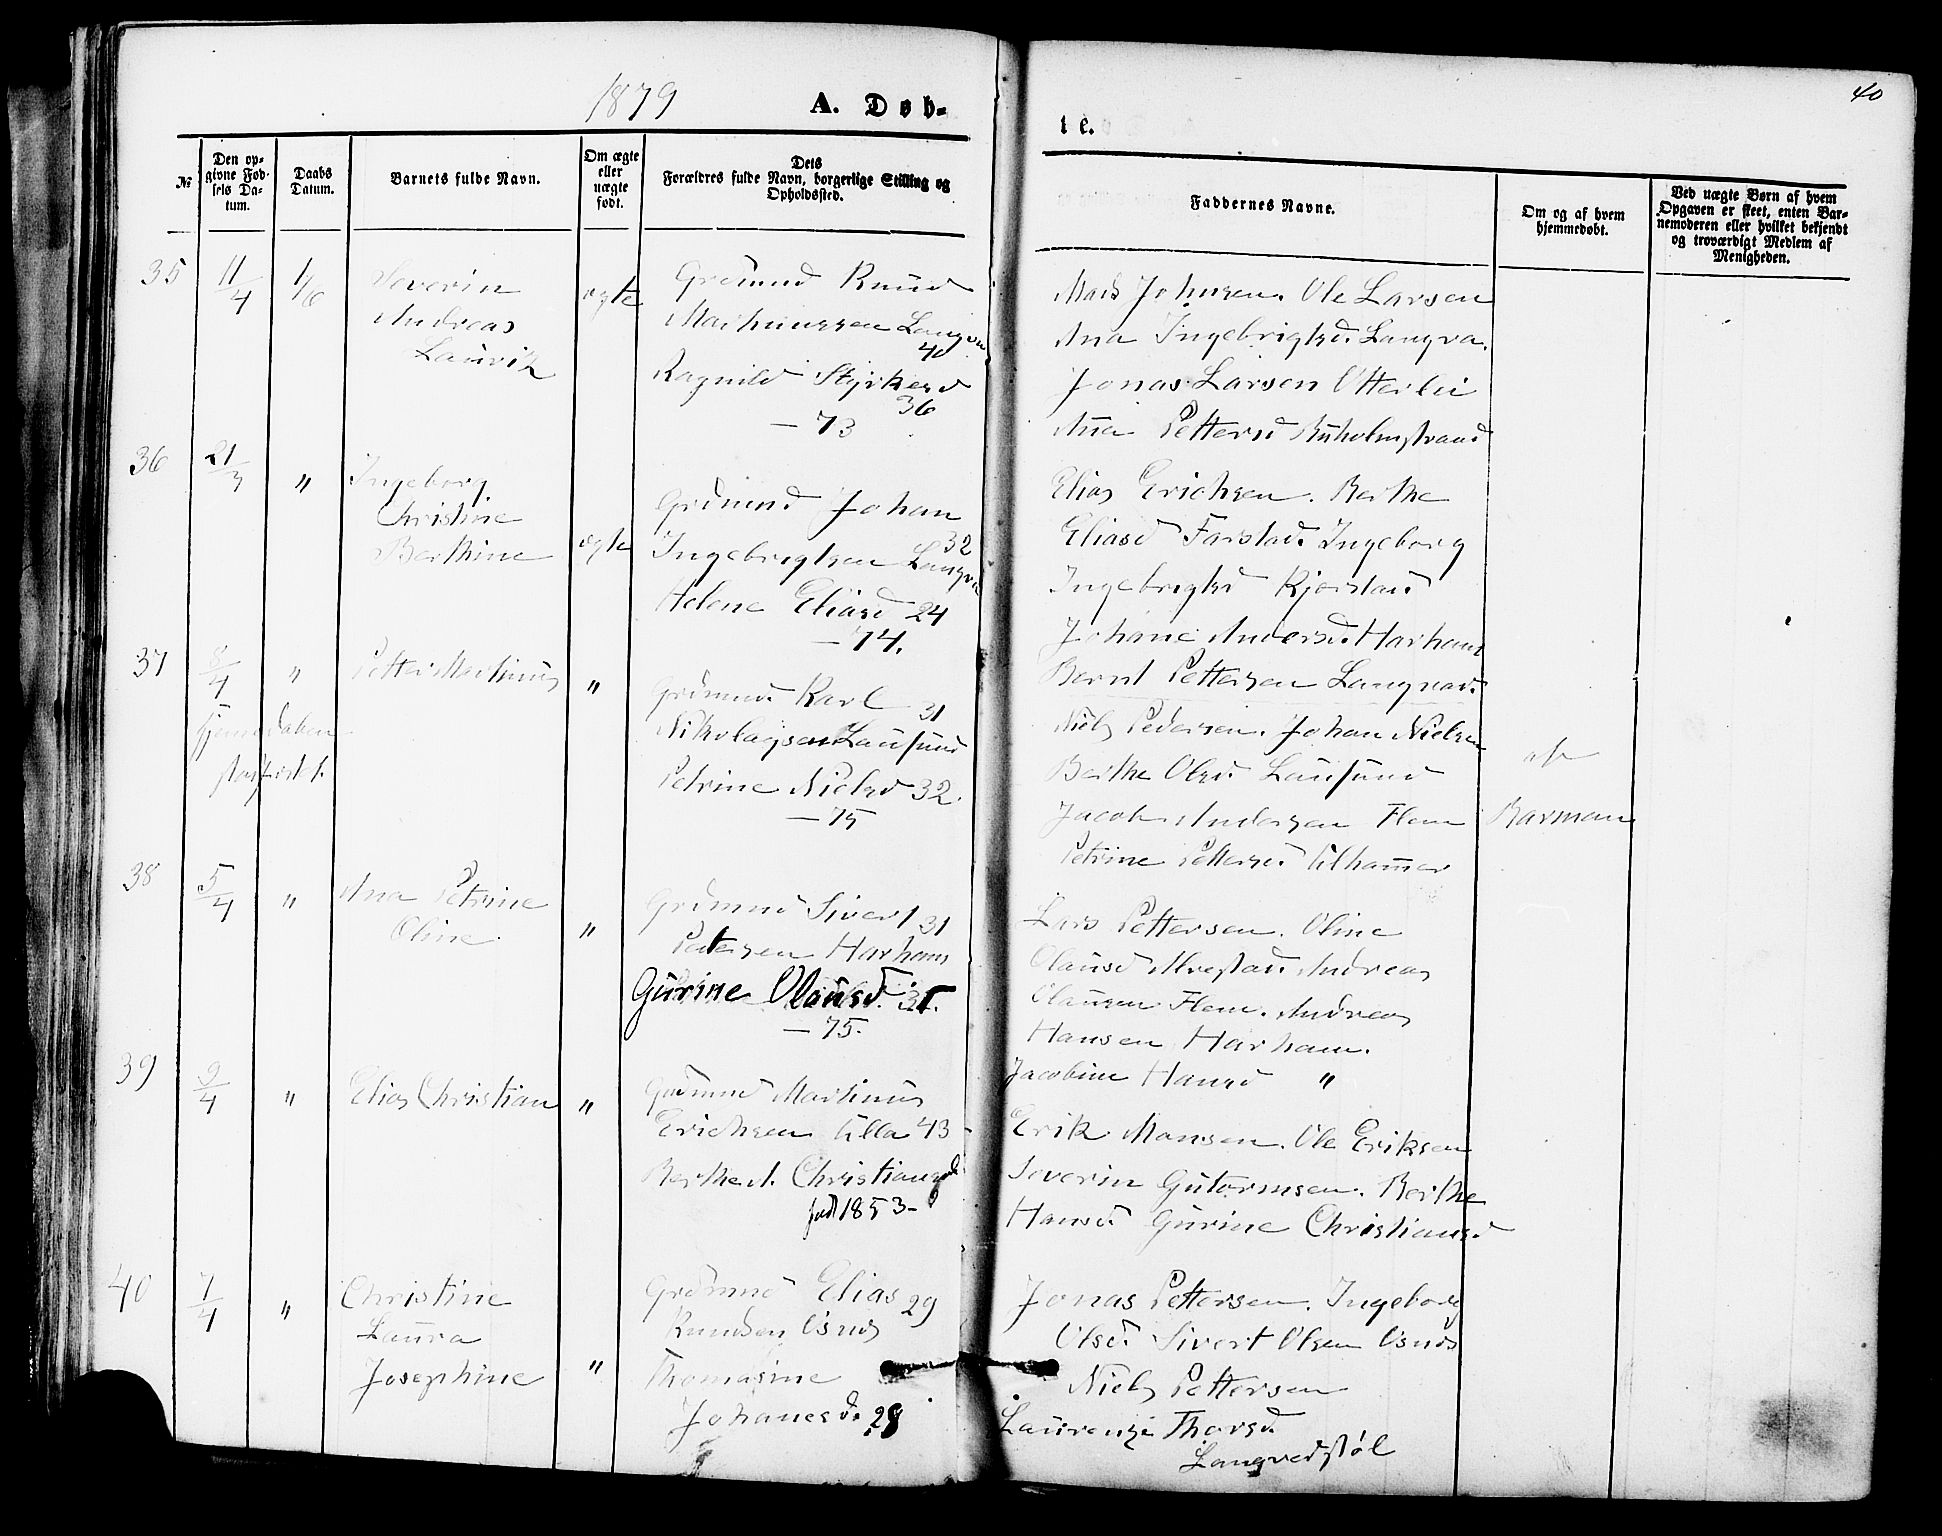 1879
A. Døb-
te.
40
№
Den op-
givne Fød-
sels Da-
tum.
Daabs
Datum.
Barnets fulde Navn.
Om ægte
eller
uægte
født.
Dets
Forældres fulde Navn, borgerlige Stilling og
Opholdssted.
Faddernes Navne.
Om og af hvem
hjemmedøbt.
Ved uægte Børn af hvem
Opgaven er skeet, enten Bar-
nemoderen eller hvilket bekjendt
og troværdigt Medlem af
Menigheden.
35
11/4
1/6
Severin
Andreas
Lauritz
ægte
Grdmnd Knud
Mathiussen Langva
40
Ragnild Styrkesd
36
— 73
Mads Johnsen. Ole Larsen
Ana Ingebrigtsd. Langva.
Jonas Larsen Otterlei
Ana Pettersd Kuholmstrand
36
21/3
"
Ingeborg
Christine
Berthine
ægte
Grdmnd Johan
32
Ingebrigtsen Langva
Helene Eliasd 24
— 74.
Elias Erichsen. Berthe
Eliasd Farstad. Ingeborg
Ingebrigtsd Kjerstad
Johane Andersd. Harham
37
8/4
"
Petter Martinus
"
Grdmnd. Karl 31
Nikolaysen Lausund
Petrine Nielsd 32.
— 75
Bernt Pettersen Langva.
Niels Pedersen. Johan Nielsen
Berthe Olsd. Lausund
Jacob Andersen Flem
Petrine Pettersd. Ulhammer
af
Barman
hjemmedaaben
stadfæstet.
38
5/4
"
Ana Petrine
Oline.
"
Grdmnd Sivert 31
Petersen Harham
Gurine Olausd. 35.
— 75.
Lars Pettersen. Oline
Olausd Alvestad. Andreas
Olausen Flem. Andreas
Hansen Harham.
Jacobine Hansd "
39
9/4
"
Elias Christian
"
Grdmnd Martinus
Erichsen Ulla 43
Berthe A. Christiansd
født 1853 -
Erik Monsen. Ole Eriksen
Severin Gutormsen. Berthe
Hansd Gurine Christiansd
40
7/4
"
Christine
Laura
Josephine
"
Grdmnd Elias 29
Knudsen Osnes
Thomasine
Johanesd. 28
Jonas Pettersen. Ingeborg
Olsd. Sivert Olsen Osnes
Niels Pettersen
Laurense Thorsd.
Langvedstøl